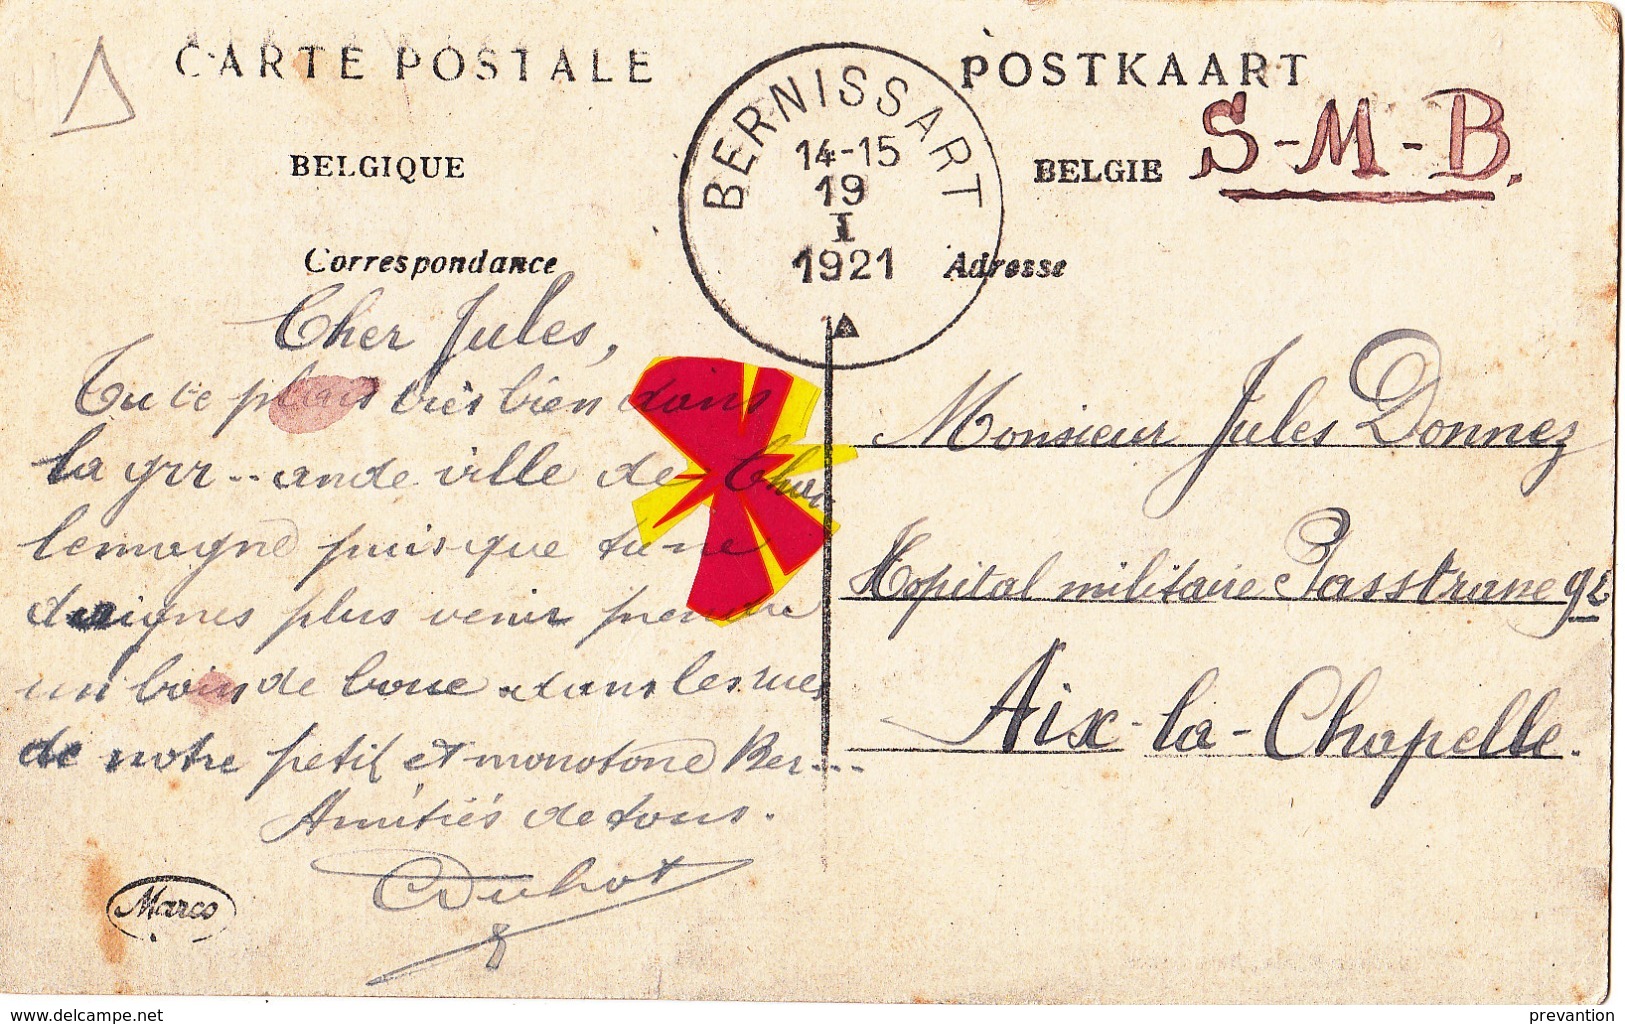 CARTE POSTALE
POSTKAART
BELGIQUE
BELGIE
S-M-B.
BERNISSART
14-15
19
I
1921
Correspondance
Adresse
Cher Jules,
Tu te plais très bien dans
la grr..ande ville de Char
lemagne puisque tu ne
daignes plus venir prendre
un bain de boue dans les rues
de notre petit et monotone Ber....
Amitiés de tous.
Marco
Monsieur Jules Donnez
Hopital militaire Passtrasse 92
Aix-la-Chapelle.
www.delcampe.net
prevantion